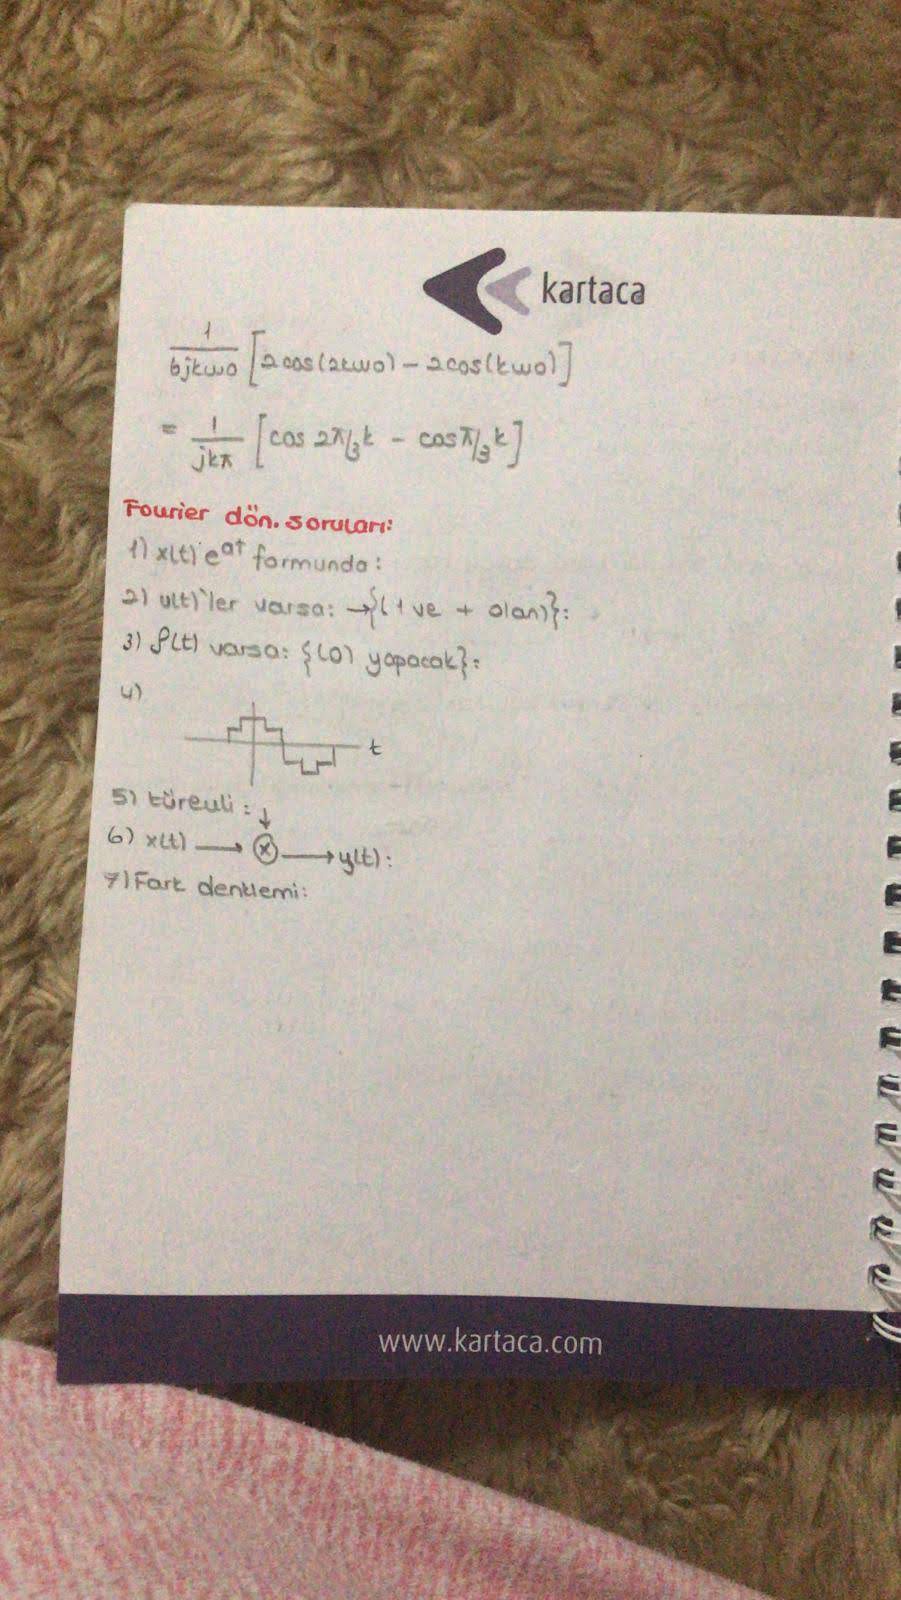 kartaca
1/6jkw0 [2cos(2kw0) - 2cos(kw0)]
= 1/jkπ [cos 2π/3k - cosπ/3k]
Fourier dön. soruları:
1) x(t) e^at formunda:
2) u(t)'ler varsa: →{(1 ve + olan)}:
3) δ(t) varsa: {(0) yapacak}:
4)
t
5) türevli:
6) x(t) → ⓧ → y(t):
7) Fark denklemi:
www.kartaca.com